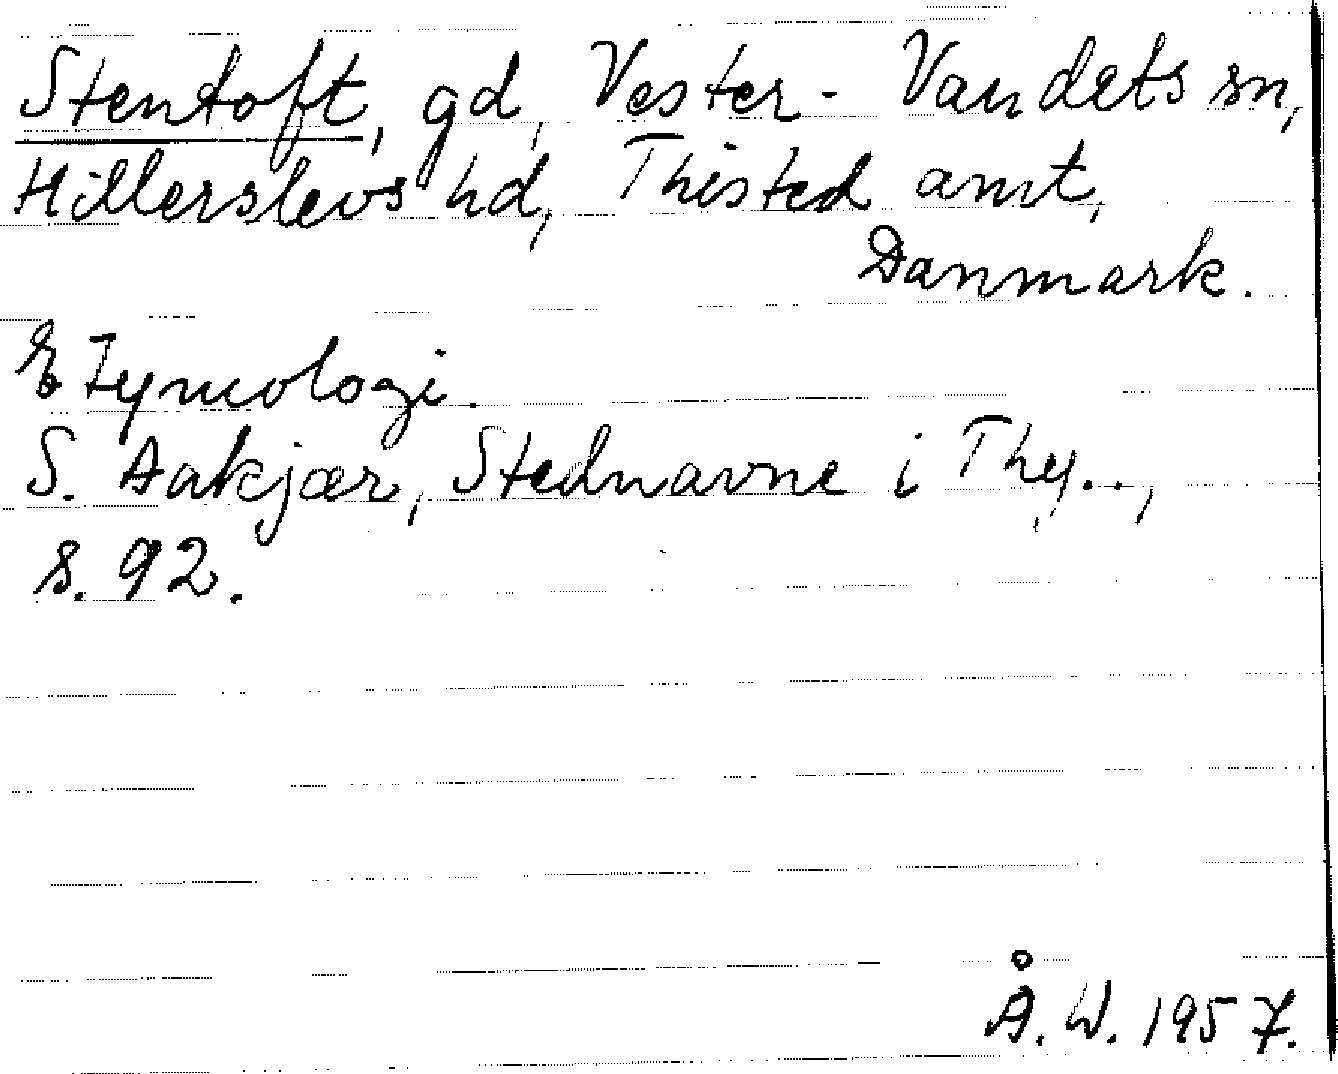 Stentoft, gd, Vester-Vandets sn,
Hillerslevs hd, Thisted amt,
Danmark.
Etymologi.
S. Aakjær, Stednavne i Thy..,
s. 92.
Å. W. 1957.